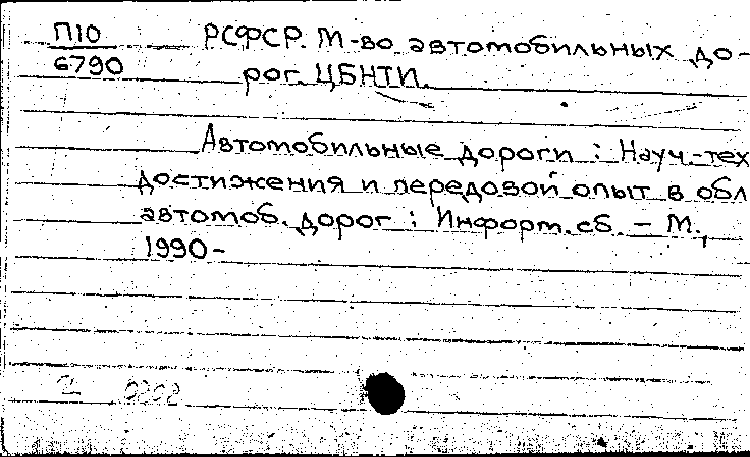 П10 РСФСР. М-во автомобильных до-
6790 рог. ЦБНТИ.
Автомобильные дороги : Науч.-тех
достижения и передовой опыт в обл
автомоб. дорог : Информ. сб. – М.,
1990–